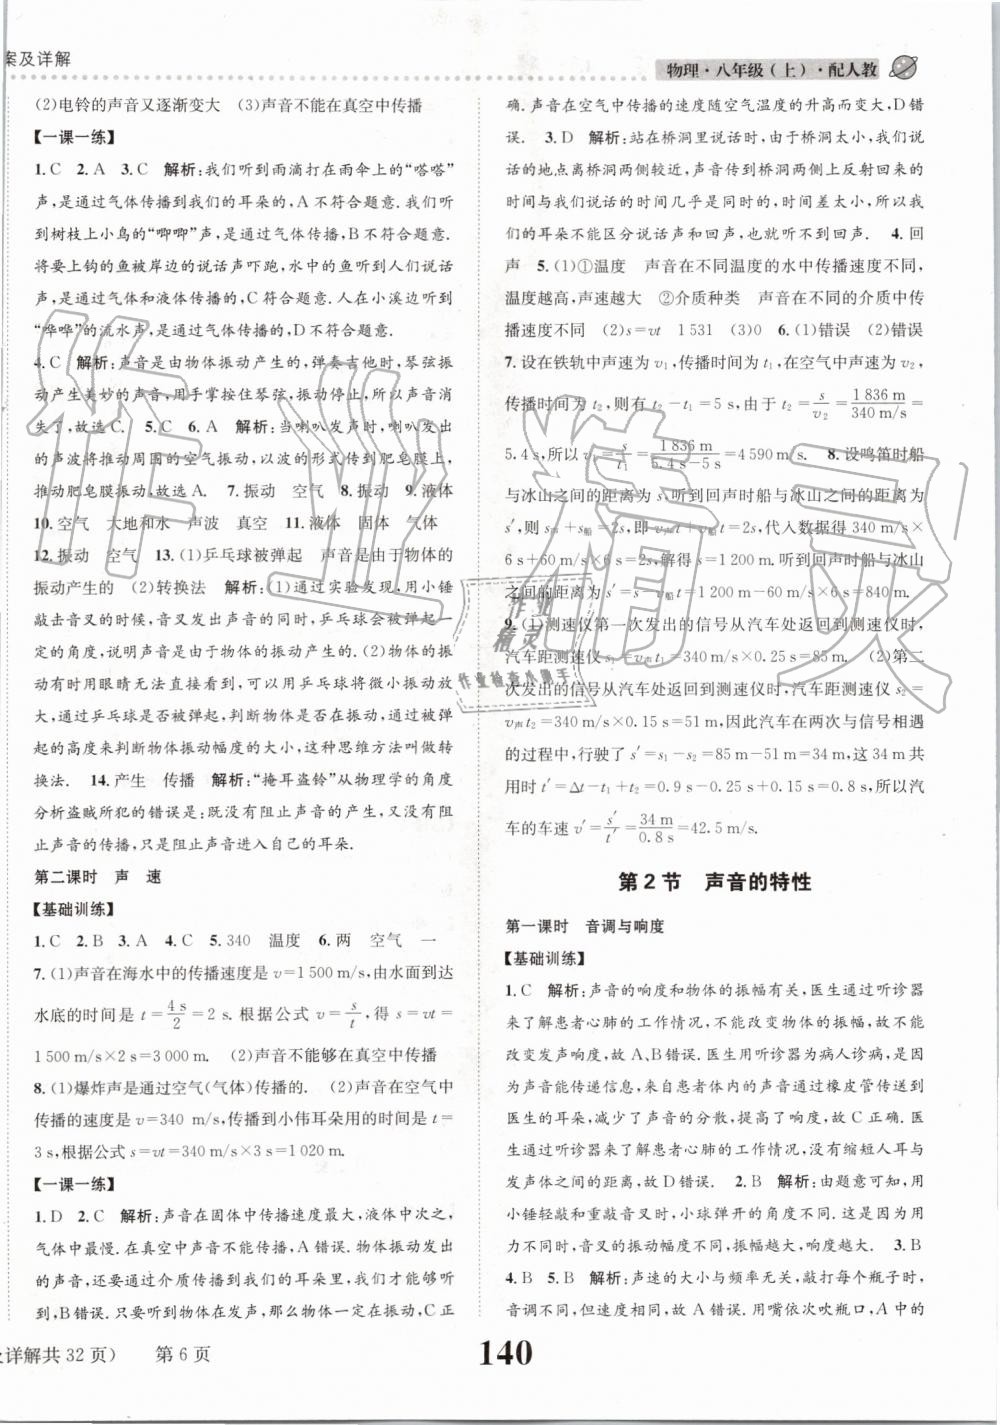 案及详解
物理·八年级(上)·配人教
(2)电铃的声音又逐渐变大　(3)声音不能在真空中传播
【一课一练】
1. C　2. A　3. C　解析:我们听到雨滴打在雨伞上的“嗒嗒”
声,是通过气体传播到我们的耳朵的,A 不符合题意. 我们听
到树枝上小鸟的“唧唧”声,是通过气体传播的,B 不符合题意.
将要上钩的鱼被岸边的说话声吓跑,水中的鱼听到人们说话
声,是通过气体和液体传播的,C 符合题意. 人在小溪边听到
“哗哗”的流水声,是通过气体传播的,D 不符合题意.
4. C　解析:声音是由物体振动产生的,弹奏吉他时,琴弦振
动产生美妙的声音,用手掌按住琴弦,振动停止,所以声音消
失了,故选 C.　5. C　6. A　解析:当喇叭发声时,喇叭发出
的声波将推动周围的空气振动,以波的形式传到肥皂膜上,
推动肥皂膜振动,故选 A.　7. 振动　空气　8. 振动　9. 液体
10. 空气　大地和水　声波　真空　11. 液体　固体　气体
12. 振动　空气　13. (1)乒乓球被弹起　声音是由于物体的
振动产生的　(2)转换法　解析:(1)通过实验发现,用小锤
敲击音叉的时候,音叉发出声音的同时,乒乓球会被弹起一
定的角度,说明声音是由于物体的振动产生的. (2)音叉的振
动有时用眼睛无法直接看到,可以利用乒乓球将微小振动放
大,通过乒乓球是否被弹起,判断物体是否在振动,根据被弹
起的高度来判断物体振动幅度的大小,这种思维方法叫做转
换法.　14. 产生　传播　解析:“掩耳盗铃”从物理学的角度
分析盗贼所犯的错误是:既没有阻止声音的产生,又没有阻
止声音的传播,只是阻止声音进入自己的耳朵.
第二课时　声　速
【基础训练】
1. C　2. B　3. A　4. C　5. 340　温度　6. 两　空气　一
7. (1)声音在海水中的传播速度是 v=1 500 m/s,由水面到达
水底的时间是 t=4 s/2=2 s. 根据公式 v=s/t,得 s=vt=
1 500 m/s×2 s=3 000 m.　(2)声音不能够在真空中传播
8. (1)爆炸声是通过空气(气体)传播的.　(2)声音在空气中
传播的速度是 v=340 m/s,传播到小伟耳朵用的时间是 t=
3 s,根据公式 s=vt=340 m/s×3 s=1 020 m.
【一课一练】
1. D　2. C　解析:声音在固体中传播速度最大,液体中次之,
气体中最慢. 在真空中声音不能传播,A 错误. 物体振动发出
的声音,还要通过介质传播到我们的耳朵里,我们才能听
到,B 错误. 只要听到物体在发声,那么物体一定在振动,C 正
确. 声音在空气中传播的速度随空气温度的升高而变大,D 错
误.　3. D　解析:站在桥洞里说话时,由于桥洞太小,我们说
话的地点离桥洞两侧较近,声音从桥洞上反射回来的
时间与我们说话的时间几乎是同时的,时间差太小,所以我
们的耳朵不能区分说话声和回声,也就听不到回声.　4. 回
声　5. (1)①温度　声音在不同温度的水中传播速度不同,
温度越高,声速越大　②介质种类　声音在不同的介质中传
播速度不同　(2)s=vt　1 531　(3)0　6. (1)错误　(2)错误
7. 设在铁轨中声速为 v₁,传播时间为 t₁,在空气中声速为 v₂,
传播时间为 t₂,则有 t₂-t₁=5 s,由于 t₂=s/v₂=1 836 m/340 m/s=
5.4 s,所以 v₁=s/t₁=1 836 m/5.4 s-5 s=4 590 m/s.　8. 设鸣笛时船
与冰山之间的距离为 s,听到回声时船与冰山之间的距离为
s′,则 s声+s船=2s,即 v声t+v船t=2s,代入数据得 340 m/s×
6 s+60 m/s×6 s=2s,解得 s=1 200 m. 听到回声时船与冰山
之间的距离为 s′=s-v船t=1 200 m-60 m/s×6 s=840 m.
9. (1)测速仪第一次发出的信号从汽车处返回到测速仪时,
汽车距测速仪 s₁=v声t₁=340 m/s×0.25 s=85 m.　(2)第二
次发出的信号从汽车处返回到测速仪时,汽车距测速仪 s₂=
v声t₂=340 m/s×0.15 s=51 m,因此汽车在两次与信号相遇
的过程中,行驶了 s′=s₁-s₂=85 m-51 m=34 m,这 34 m 共
用时 t′=Δt-t₁+t₂=0.9 s-0.25 s+0.15 s=0.8 s,所以汽
车的车速 v′=s′/t′=34 m/0.8 s=42.5 m/s.
第 2 节　声音的特性
第一课时　音调与响度
【基础训练】
1. C　解析:声音的响度和物体的振幅有关,医生通过听诊器
来了解患者心肺的工作情况,不能改变物体的振幅,故不能
改变发声响度,故 A、B 错误. 医生用听诊器为病人诊病,是因
为声音能传递信息,来自患者体内的声音通过橡皮管传送到
医生的耳朵,减少了声音的分散,提高了响度,故 C 正确. 医
生通过听诊器来了解患者心肺的工作情况,没有缩短人耳与
发声体之间的距离,故 D 错误.　2. B　解析:由题意可知,使
用小锤轻敲和重敲音叉时,小球弹开的角度不同. 这是因为
用力不同,音叉的振动幅度不同,振幅越大,响度越大.　3. B
4. B　5. B　解析:声速的大小与频率无关,敲打每个瓶子时,
音调不同但速度相同,故 A 错误. 用嘴依次吹瓶口,A 中的
及详解共 32 页)　第 6 页
140
作业精灵
作业
精灵
作业检查小助手